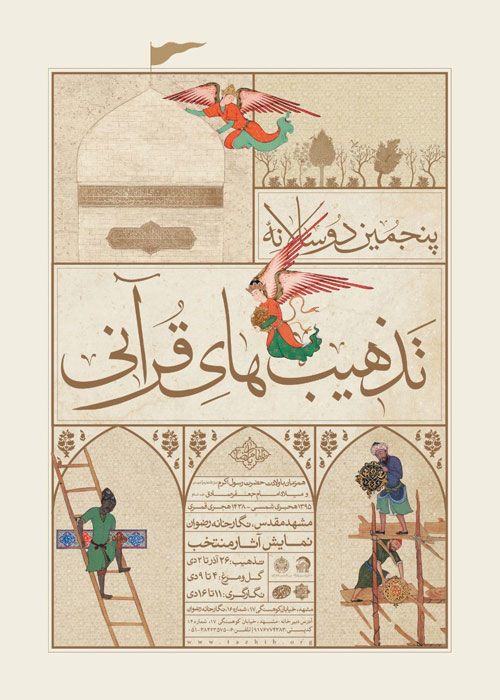 پنجمین دوسالانهٔ
تذهیب‌های قرآنی
همزمان با ولادت حضرت رسول اکرم
و میلاد امام جعفر صادق
۱۳۹۵ هجری شمسی - ۱۴۳۸ هجری قمری
مشهد مقدس، نگارخانه رضوان
نمایش آثار منتخب
تذهیب: ۲۶ آذر تا ۲ دی
گل و مرغ: ۴ تا ۹ دی
نگارگری: ۱۱ تا ۱۶ دی
مشهد، خیابان کوهسنگی ۱۷، شماره ۱۶، نگارخانه رضوان
آدرس دبیرخانه: مشهد، خیابان کوهسنگی ۱۷، شماره ۱۴
کدپستی: ۹۱۷۶۷۷۴۴۸۳ | تلفن: ۳۸۴۳۳۵۷۵۰۶-۰۵۱
www.tazhib.org